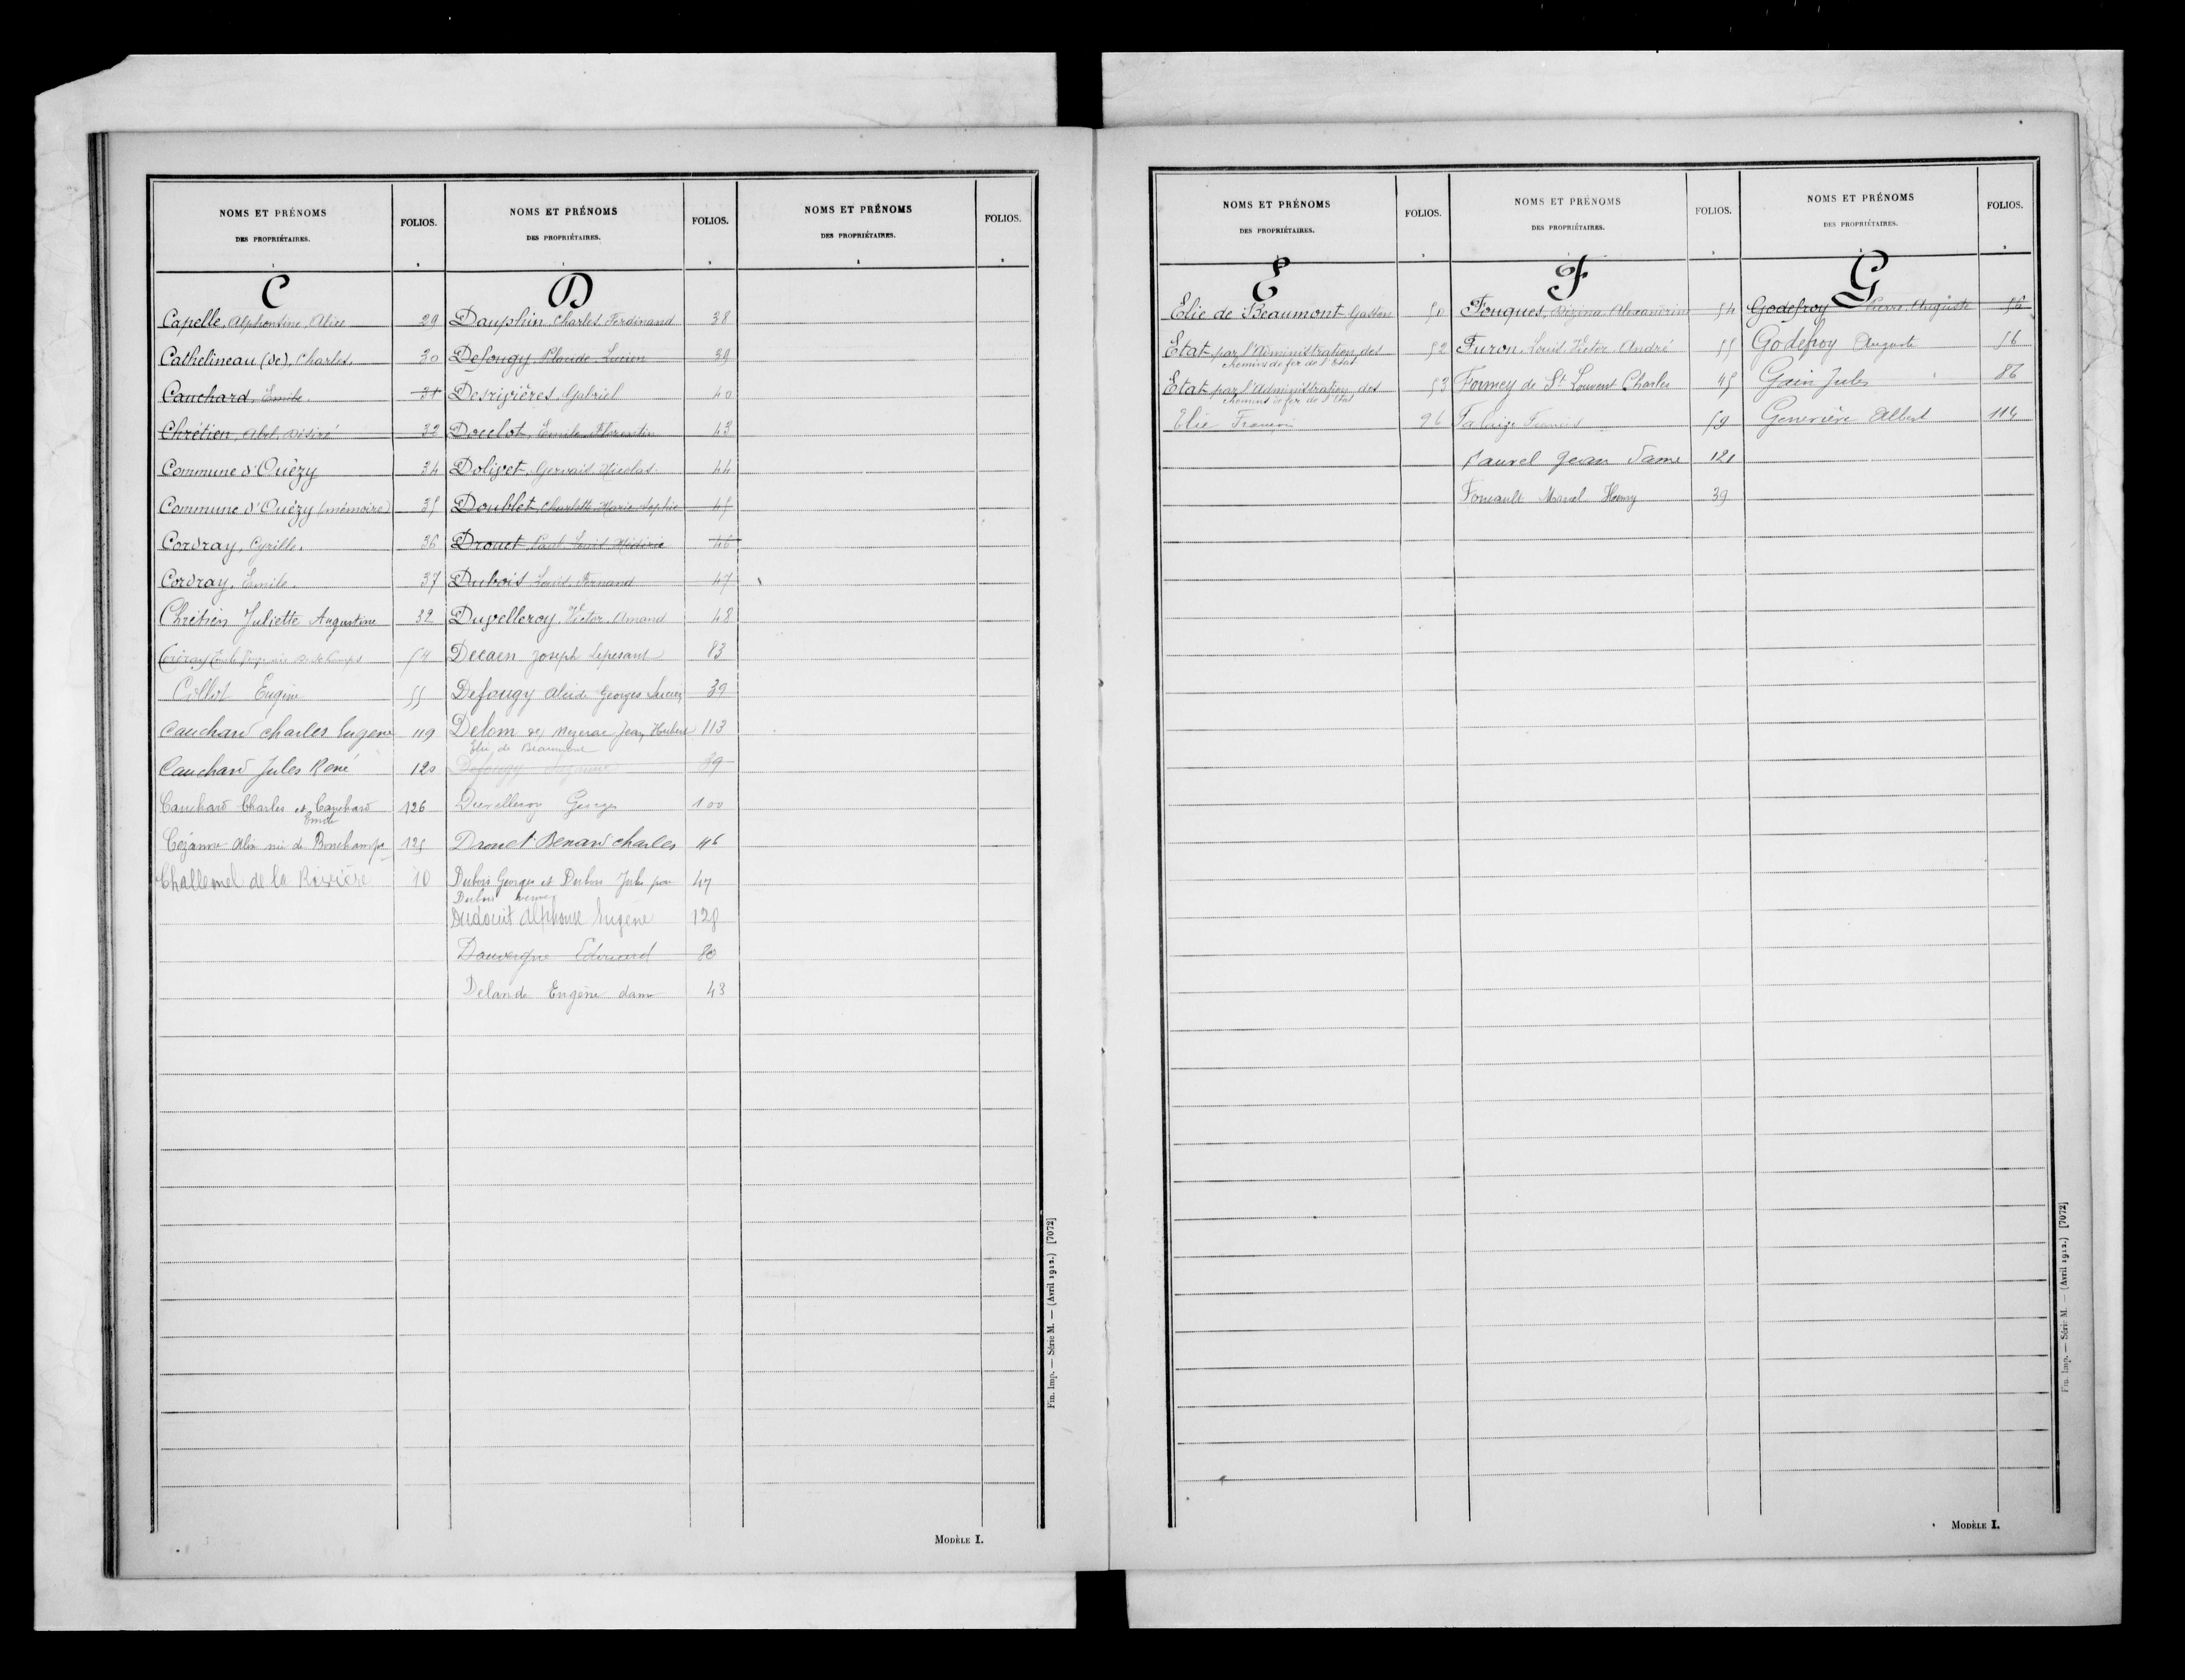 NOMS ET PRÉNOMS
DES PROPRIÉTAIRES.
FOLIOS.
NOMS ET PRÉNOMS
DES PROPRIÉTAIRES.
FOLIOS.
NOMS ET PRÉNOMS
DES PROPRIÉTAIRES.
FOLIOS.
C
Capelle, Alphonsine, Alice 29
Cathelineau (de), Charles. 30
Cauchard, Emile. 31
Chrétien, Abel, Désiré 32
Commune d'Ouézy 34
Commune d'Ouézy (mémoire) 35
Cordray, Cyrille. 36
Cordray, Emile. 37
Chrétien Juliette Augustine 32
54
Collet Eugène 55
Cauchard Charles Eugène 119
Cauchard Jules René 120
Cauchard Charles et Cauchard 126
Emile
Cézanne Alix née de Bonchamps 125
Challemel de la Rivière 10
D
Dauphin, Charles, Ferdinand 38
Defougy, Placide Lucien 39
Desrivières, Gabriel 40
Docelot, Emile, Florentin 43
Doliget, Gervais Nicolas 44
Doublet, Charlotte Marie Sophie 45
Drouet Paul Louis Médéric 46
Dubois Louis, Fernand 47
Duvelleroy, Victor, Amand 48
Decaen Joseph Lepesant 83
Defougy Alcide Georges Lucien 39
Delom de Mezerac Jean Hubert 113
Elie de Beaumont
Defougy Suzanne 39
Duvelleroy Georges 100
Drouet Benard Charles 46
Dubois Georges et Dubois Jules pour 47
Dubois veuve
Dudouit Alphonse Eugène 128
Dauvergne Edouard 80
Delande Eugène dame 43
Fin. Imp. — Série M. — (Avril 1912.) [7072]
MODÈLE I.
NOMS ET PRÉNOMS
DES PROPRIÉTAIRES.
FOLIOS.
NOMS ET PRÉNOMS
DES PROPRIÉTAIRES.
FOLIOS.
NOMS ET PRÉNOMS
DES PROPRIÉTAIRES.
FOLIOS.
E
Elie de Beaumont Gaston 50
Etat par l'Administration des 52
chemins de fer de l'Etat
Etat par l'Administration des 53
chemins de fer de l'Etat
Elie François 96
F
Fouques, Alexandrine 54
Furon, Louis, Victor, André 55
Formey de St Louvent Charles 45
Falaize Francis 59
Fauvel Jean Dame 121
Foucault Marcel Henry 39
G
Godefroy Pierre, Auguste 56
Godefroy Auguste 56
Gain Jules 86
Genevière Albert 114
Fin. Imp. — Série M. — (Avril 1912.) [7072]
MODÈLE I.